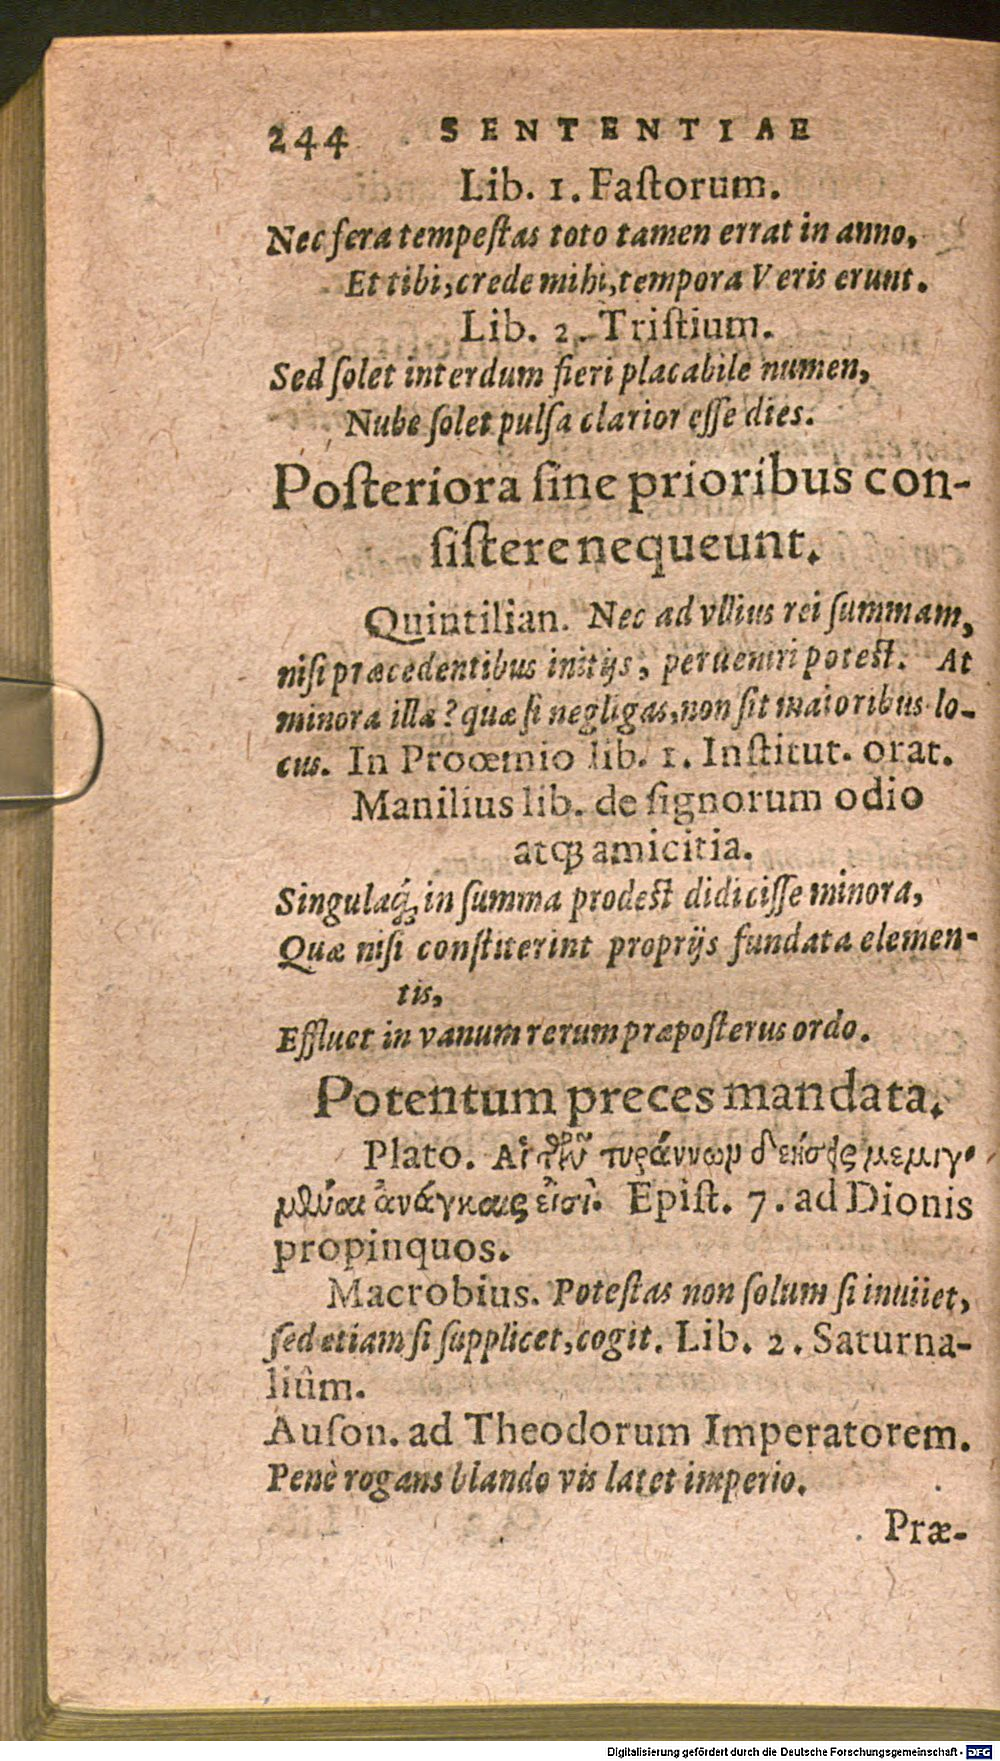 244 SENTENTIAE
Lib. 1. Faſtorum.
Nec fera tempeſtas toto tamen errat in anno,
Et tibi, crede mihi, tempora Veris erunt.
Lib. 2. Triſtium.
Sed ſolet interdum fieri placabile numen,
Nube ſolet pulſa clarior eſſe dies.
Poſteriora ſine prioribus con-
ſiſtere nequeunt.
Quintilian. Nec ad vllius rei ſummam,
niſi præcedentibus initijs, perueniri poteſt. At
minora illa? quæ ſi negligas, non ſit maioribus lo-
cus. In Proœmio lib. 1. Inſtitut. orat.
Manilius lib. de ſignorum odio
atq; amicitia.
Singulaq́; in ſumma prodeſt didiciſſe minora,
Quæ niſi conſtiterint proprijs fundata elemen-
tis,
Effluet in vanum rerum præpoſterus ordo.
Potentum preces mandata.
Plato. Αἱ τῶν τυράννων δεήσεις μεμιγ-
μέναι ἀνάγκαις εἰσὶ. Epiſt. 7. ad Dionis
propinquos.
Macrobius. Poteſtas non ſolum ſi inuiiet,
ſed etiam ſi ſupplicet, cogit. Lib. 2. Saturna-
liûm.
Auſon. ad Theodorum Imperatorem.
Penè rogans blando vis latet imperio.
Præ-
Digitalisierung gefördert durch die Deutsche Forschungsgemeinschaft - DFG